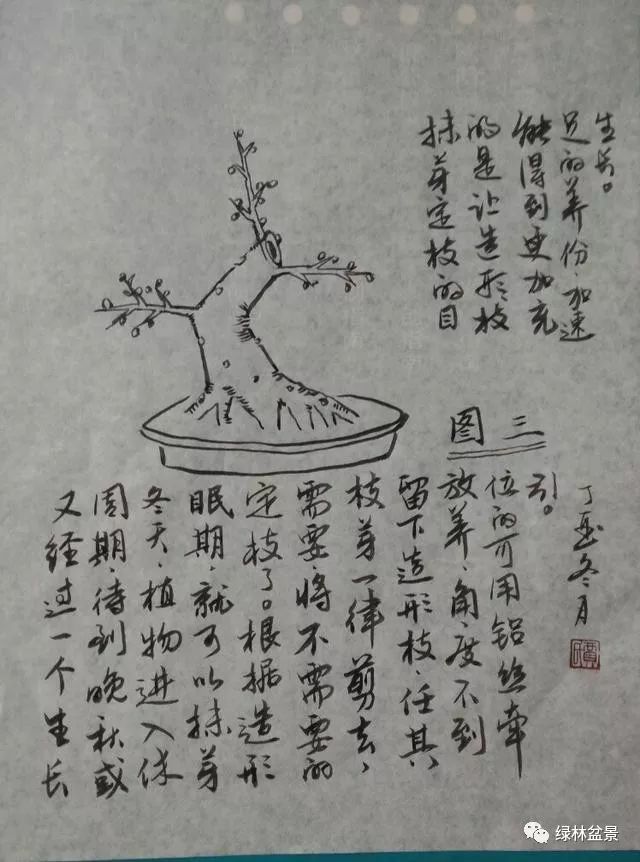 抹芽定枝的目
的是让造形枝
能得到更加充
足的养份,加速
生长。
图三
又经过一个生长
周期,待到晚秋或
冬天,植物进入休
眠期,就可以抹芽
定枝了。根据造形
需要,将不需要的
枝芽一律剪去,
留下造形枝,任其
放养,角度不到
位的可用铝丝牵
引。
丁酉冬月
绿林盆景